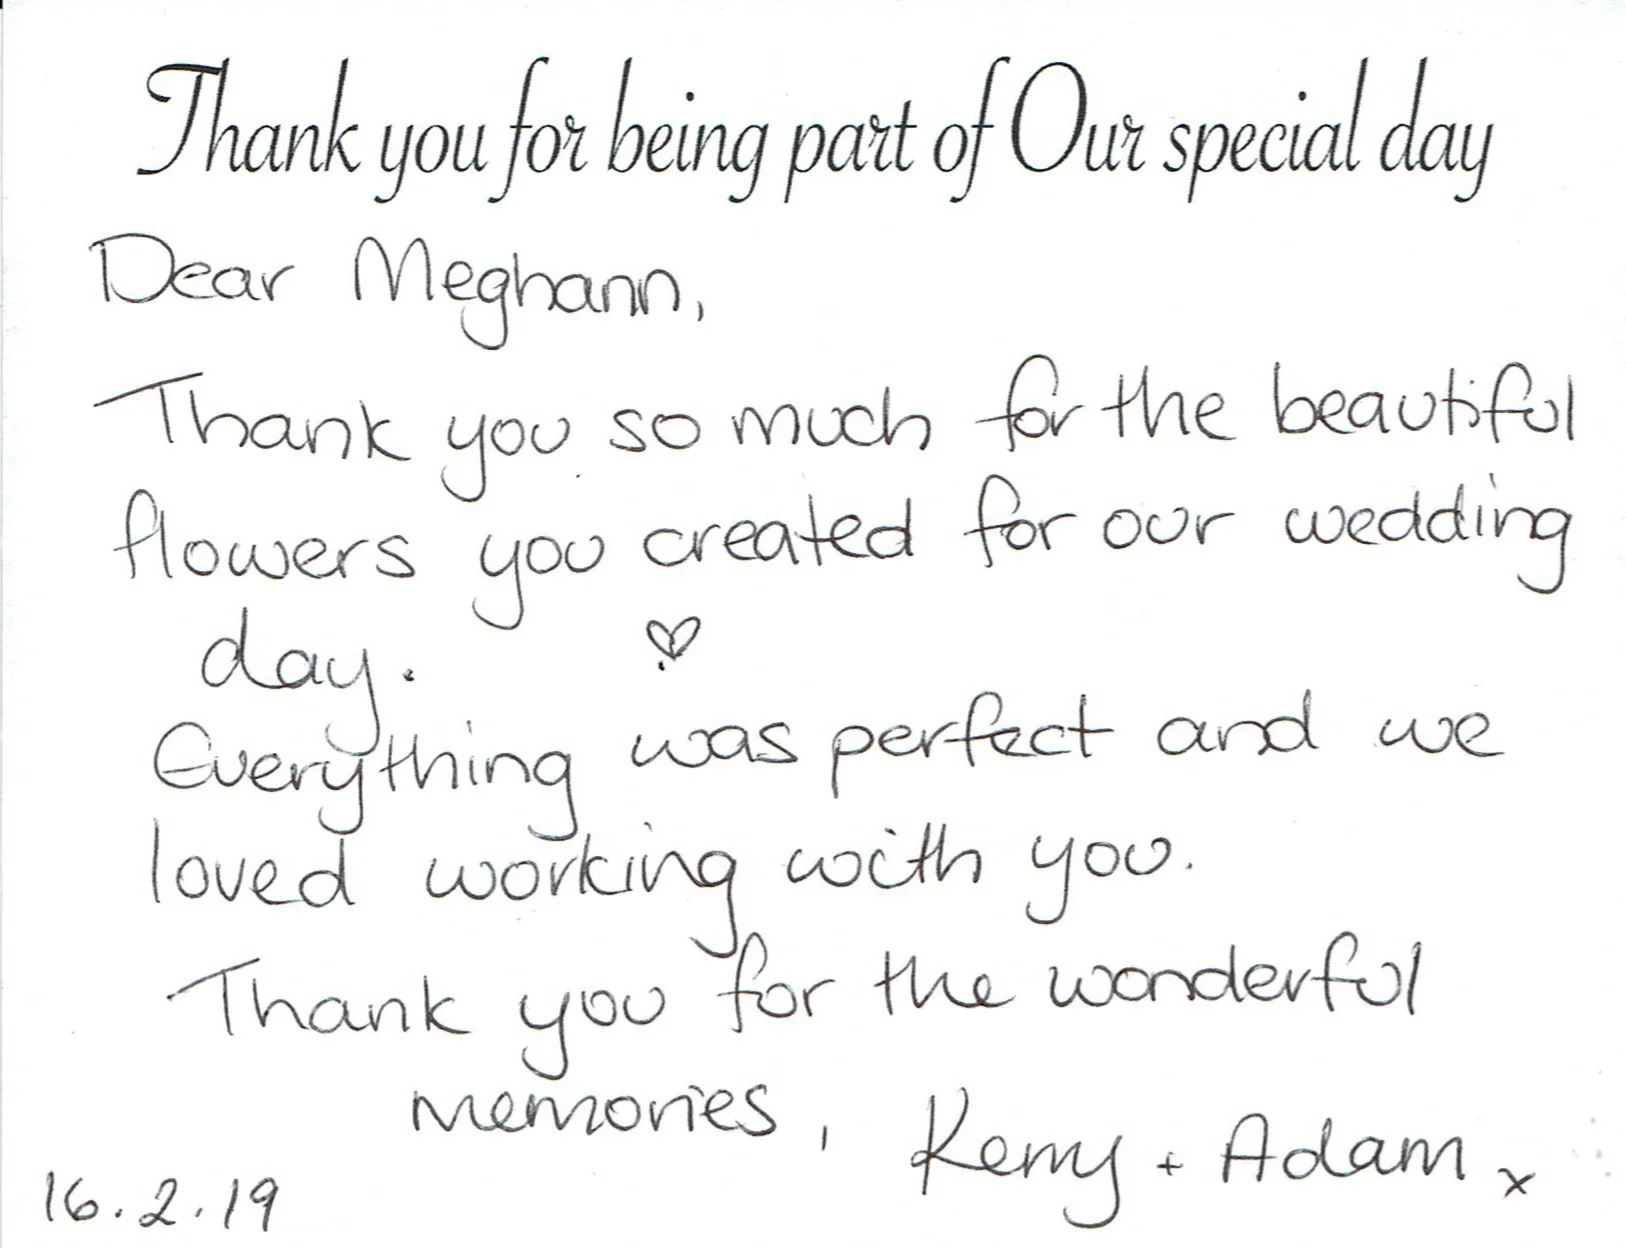 Thank you for being part of Our special day
Dear Meghann,
Thank you so much for the beautiful
flowers you created for our wedding
day. ♡
Everything was perfect and we
loved working with you.
Thank you for the wonderful
memories,
Kerry + Adam x
16.2.19